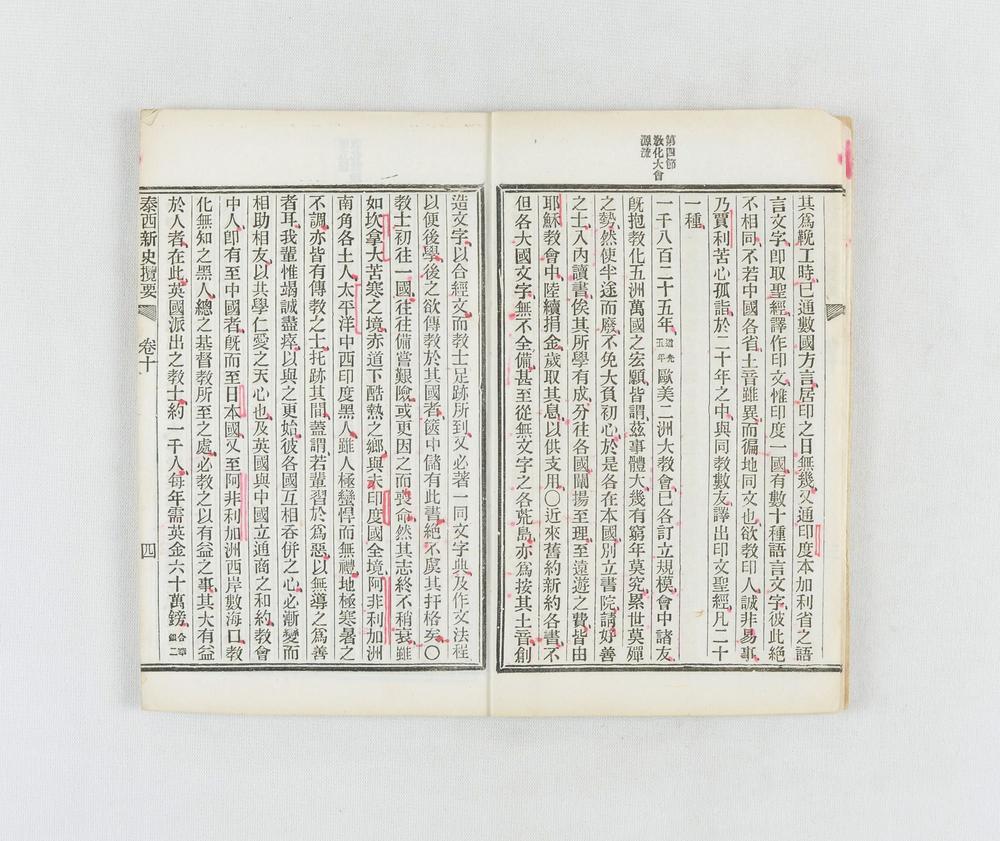 第四節
敎化大會
源流
其爲靴工時已通數國方言居印之日無幾又通印度本加利省之語
言文字卽取聖經譯作印文惟印度一國有數十種語言文字彼此絕
不相同不若中國各省土音雖異而徧地同文也欲敎印人誠非易事
乃賈利苦心孤詣於二十年之中與同敎數友譯出印文聖經凡二十
一種
一千八百二十五年道光五年歐美二洲大敎會已各訂立規模會中諸友
旣抱敎化五洲萬國之宏願皆謂茲事體大幾有窮年莫究累世莫殫
之勢然使半途而廢不免大負初心於是各在本國別立書院請好善
之士入內讀書俟其所學有成分往各國闡揚至理至遠遊之費皆由
耶穌敎會中陸續捐金歲取其息以供支用○近來舊約新約各書不
但各大國文字無不全備甚至從無文字之各荒島亦爲按其土音創
造文字以合經文而敎士足跡所到又必著一同文字典及作文法程
以便後學後之欲傳敎於其國者篋中儲有此書絕不虞其扞格矣○
敎士初往一國往往備嘗艱險或更因之而喪命然其志終不稍衰雖
如坎拿大苦寒之境赤道下酷熱之鄉與夫印度國全境阿非利加洲
南角各土人太平洋中西印度黑人雖人極蠻悍而無禮地極寒暑之
不調亦皆有傳敎之士托跡其間蓋謂若輩習於爲惡以無導之爲善
者耳我輩惟竭誠盡瘁以與之更始彼各國互相吞併之心必漸變而
相助相友以共學仁愛之天心也及英國與中國立通商之和約敎會
中人卽有至中國者旣而至日本國又至阿非利加洲西岸數海口敎
化無知之黑人總之基督敎所至之處必敎之以有益之事其大有益
於人者在此英國派出之敎士約一千人每年需英金六十萬鎊合華銀二
泰西新史攬要 卷十 四